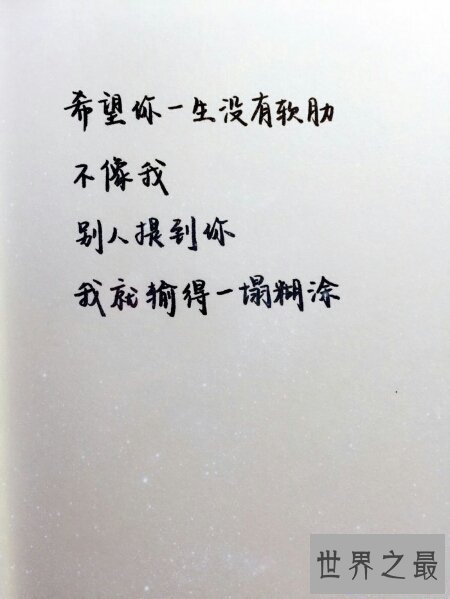 希望你一生没有软肋
不像我
别人提到你
我就输得一塌糊涂
世界之最